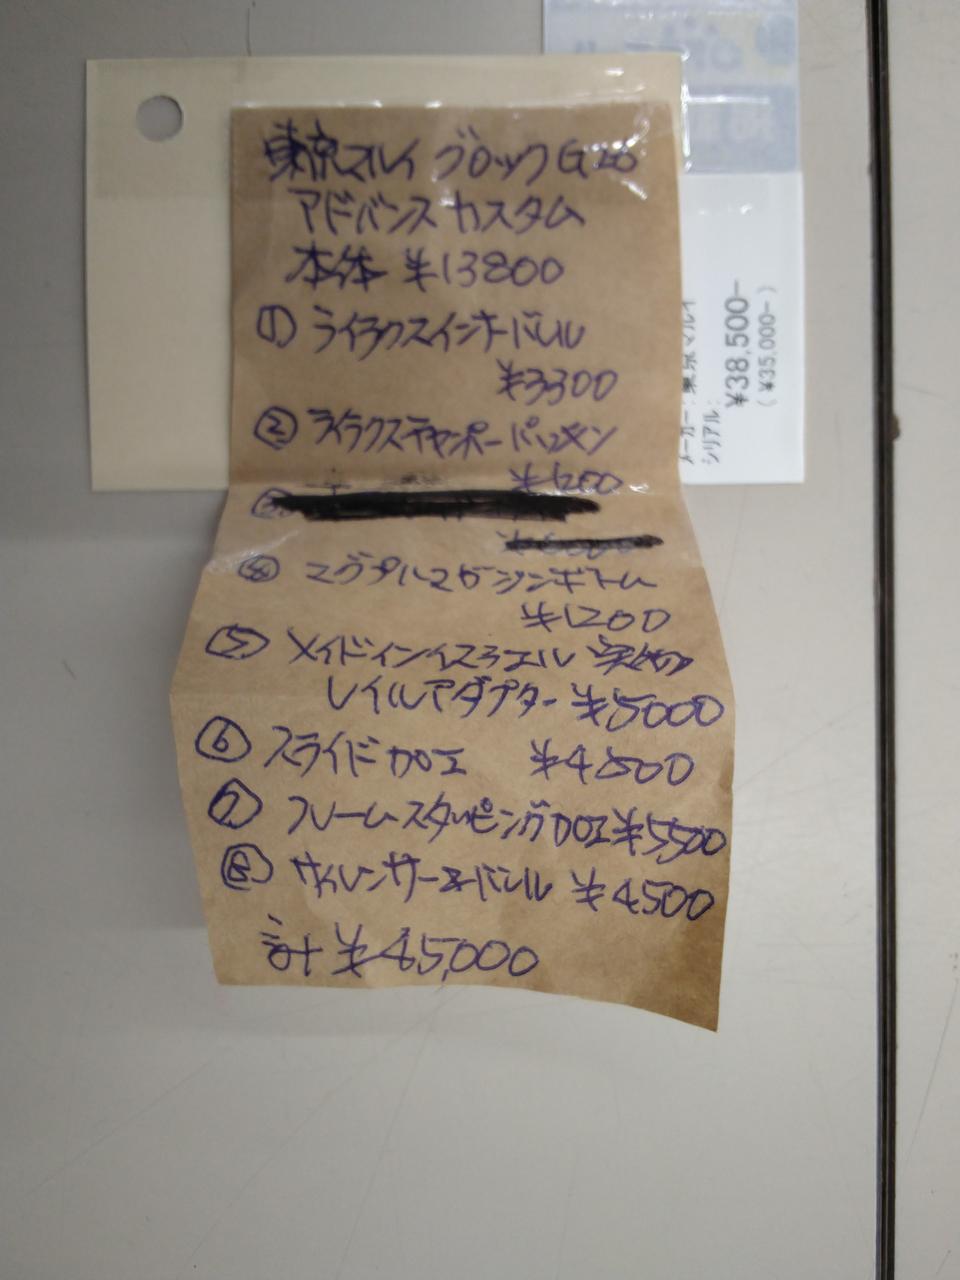 東京マルイ グロック G26
アドバンス カスタム
本体 ¥13800
① ライラクスインナーバレル
¥3300
② ライラクスチャンバーパッキン
¥1200
③
④ マグプルマガジンボトム
¥1200
⑤ メイドインイスラエル 実物
レイルアダプター ¥5000
⑥ スライド加工 ¥4500
⑦ フレームスタッピング加工 ¥5500
⑧ サイレンサー&バレル ¥4500
計 ¥45,000
メーカー: 東京マルイ
シリアル:
¥38,500-
(¥35,000-)